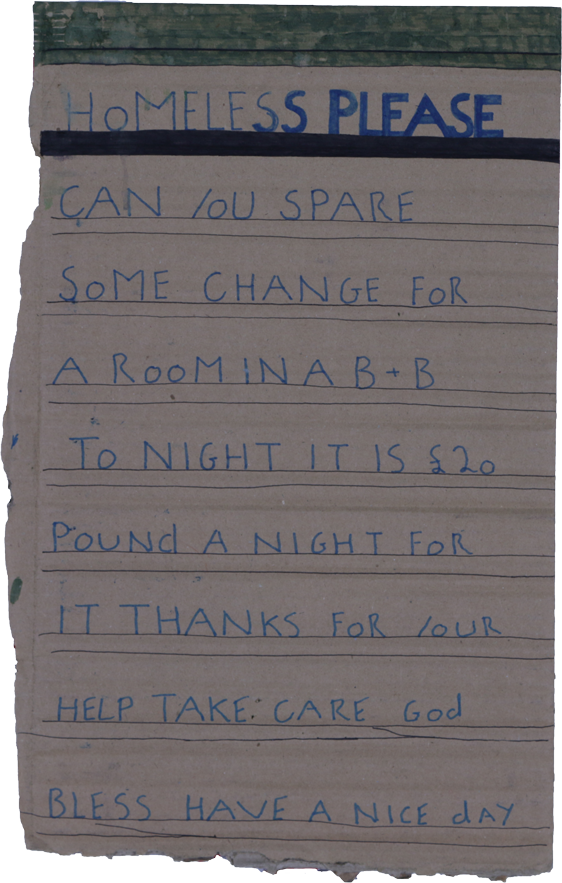 HoMELESS PLEASE
CAN YOU SPARE
SoME CHANGE FoR
A RooM IN A B+B
To NIGHT IT IS £20
PoUNd A NIGHT FoR
IT THANKS FoR YoUR
HELP TAKE CARE God
BLESS HAVE A NICE dAY